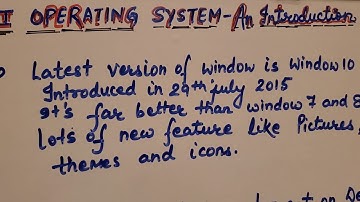 II OPERATING SYSTEM-An Introduction
Latest version of window is window 10
Introduced in 29th july 2015
It's far better than window 7 and 8
lots of new feature like Pictures,
themes and icons.